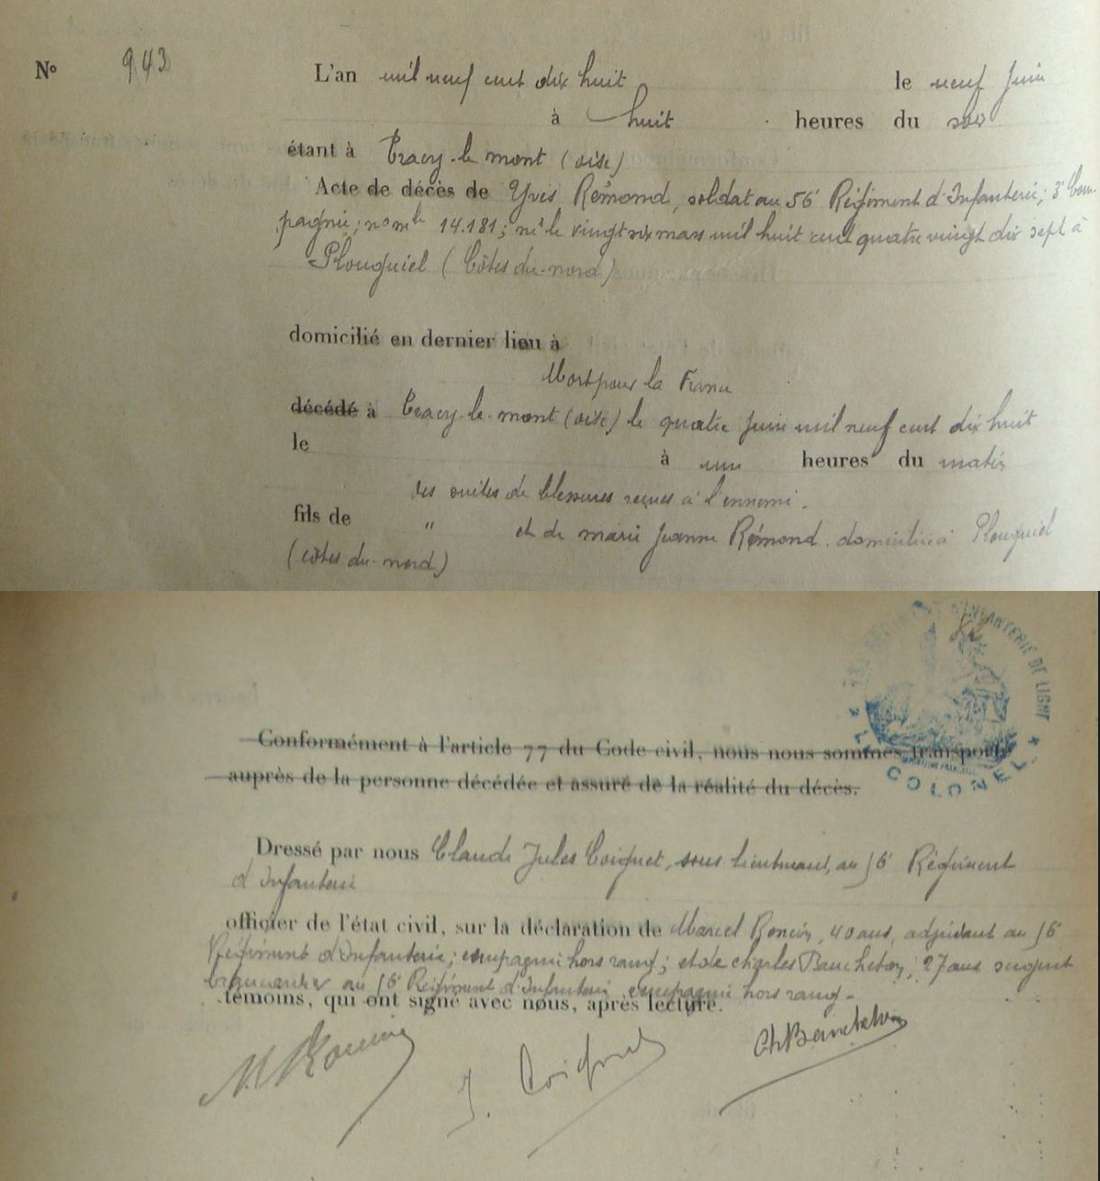 N° 943
L'an mil neuf cent dix huit le neuf Juin
à huit heures du soir
étant à Tracy-le mont (oise)
Acte de décès de Yves Rémond, soldat au 56e Régiment d'Infanterie; 3e Com-
pagnie; n° mle 14.181; né le vingt six mars mil huit cent quatre vingt dix sept à
Plouguiel (Côtes du-nord)
domicilié en dernier lieu à
Mort pour la France
décédé à Tracy-le-mont (oise) le quatre Juin mil neuf cent dix huit
le à une heures du matin
des suites de blessures reçues à l'ennemi.
fils de " et de marie Jeanne Rémond. domiciliée à Plouguiel
(côtes du-nord)
RÉGIMENT D'INFANTERIE DE LIGNE
LE COLONEL
Conformément à l'article 77 du Code civil, nous nous sommes transporté
auprès de la personne décédée et assuré de la réalité du décès.
Dressé par nous Claude Jules Coignet, sous lieutenant, au 56e Régiment
d'Infanterie
officier de l'état civil, sur la déclaration de Marcel 40 ans, adjudant au 56e
Régiment d'Infanterie; compagnie hors rang; et de charles Baucheton; 27 ans sergent
au 56e Régiment d'Infanterie compagnie hors rang-
témoins, qui ont signé avec nous, après lecture.
J. Coignet Ch Baucheton